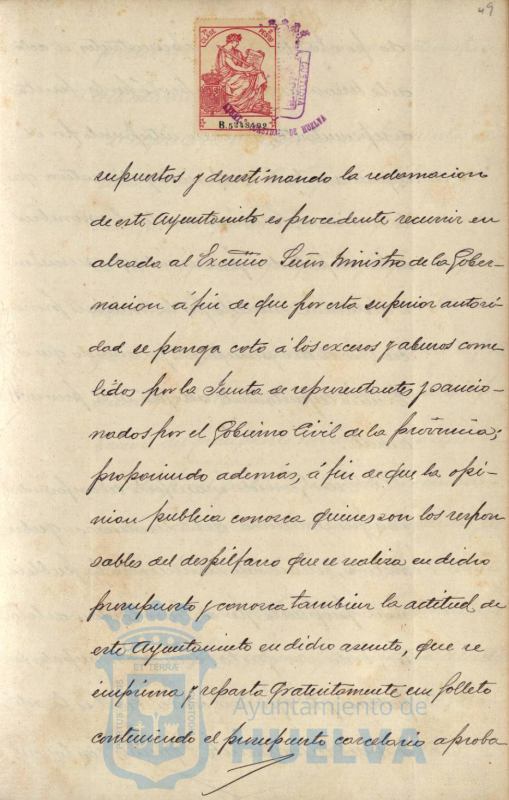 49
11ª CLASE
1 PESETA
B.5,248,492
AYUNTAMIENTO CONSTITUCIONAL DE HUELVA
supuestos y desestimando la reclamacion
de este Ayuntamiento es procedente recurrir en
alzada al Excmo Señor Ministro de la Gober-
nacion á fin de que por esta superior autori-
dad se ponga coto á los excesos y abusos come-
tidos por la Junta de representantes y sancio-
nados por el Gobierno Civil de la provincia;
proponiendo además, á fin de que la opi-
nion publica conosca quienes son los respon-
sables del despilfarro que se realiza en dicho
presupuesto y conosca tambien la actitud de
este Ayuntamiento en dicho asunto, que se
imprima y reparta gratuitamente un folleto
conteniendo el presupuesto carcelario aproba
ET TERRÆ
Ayuntamiento de
HUELVA